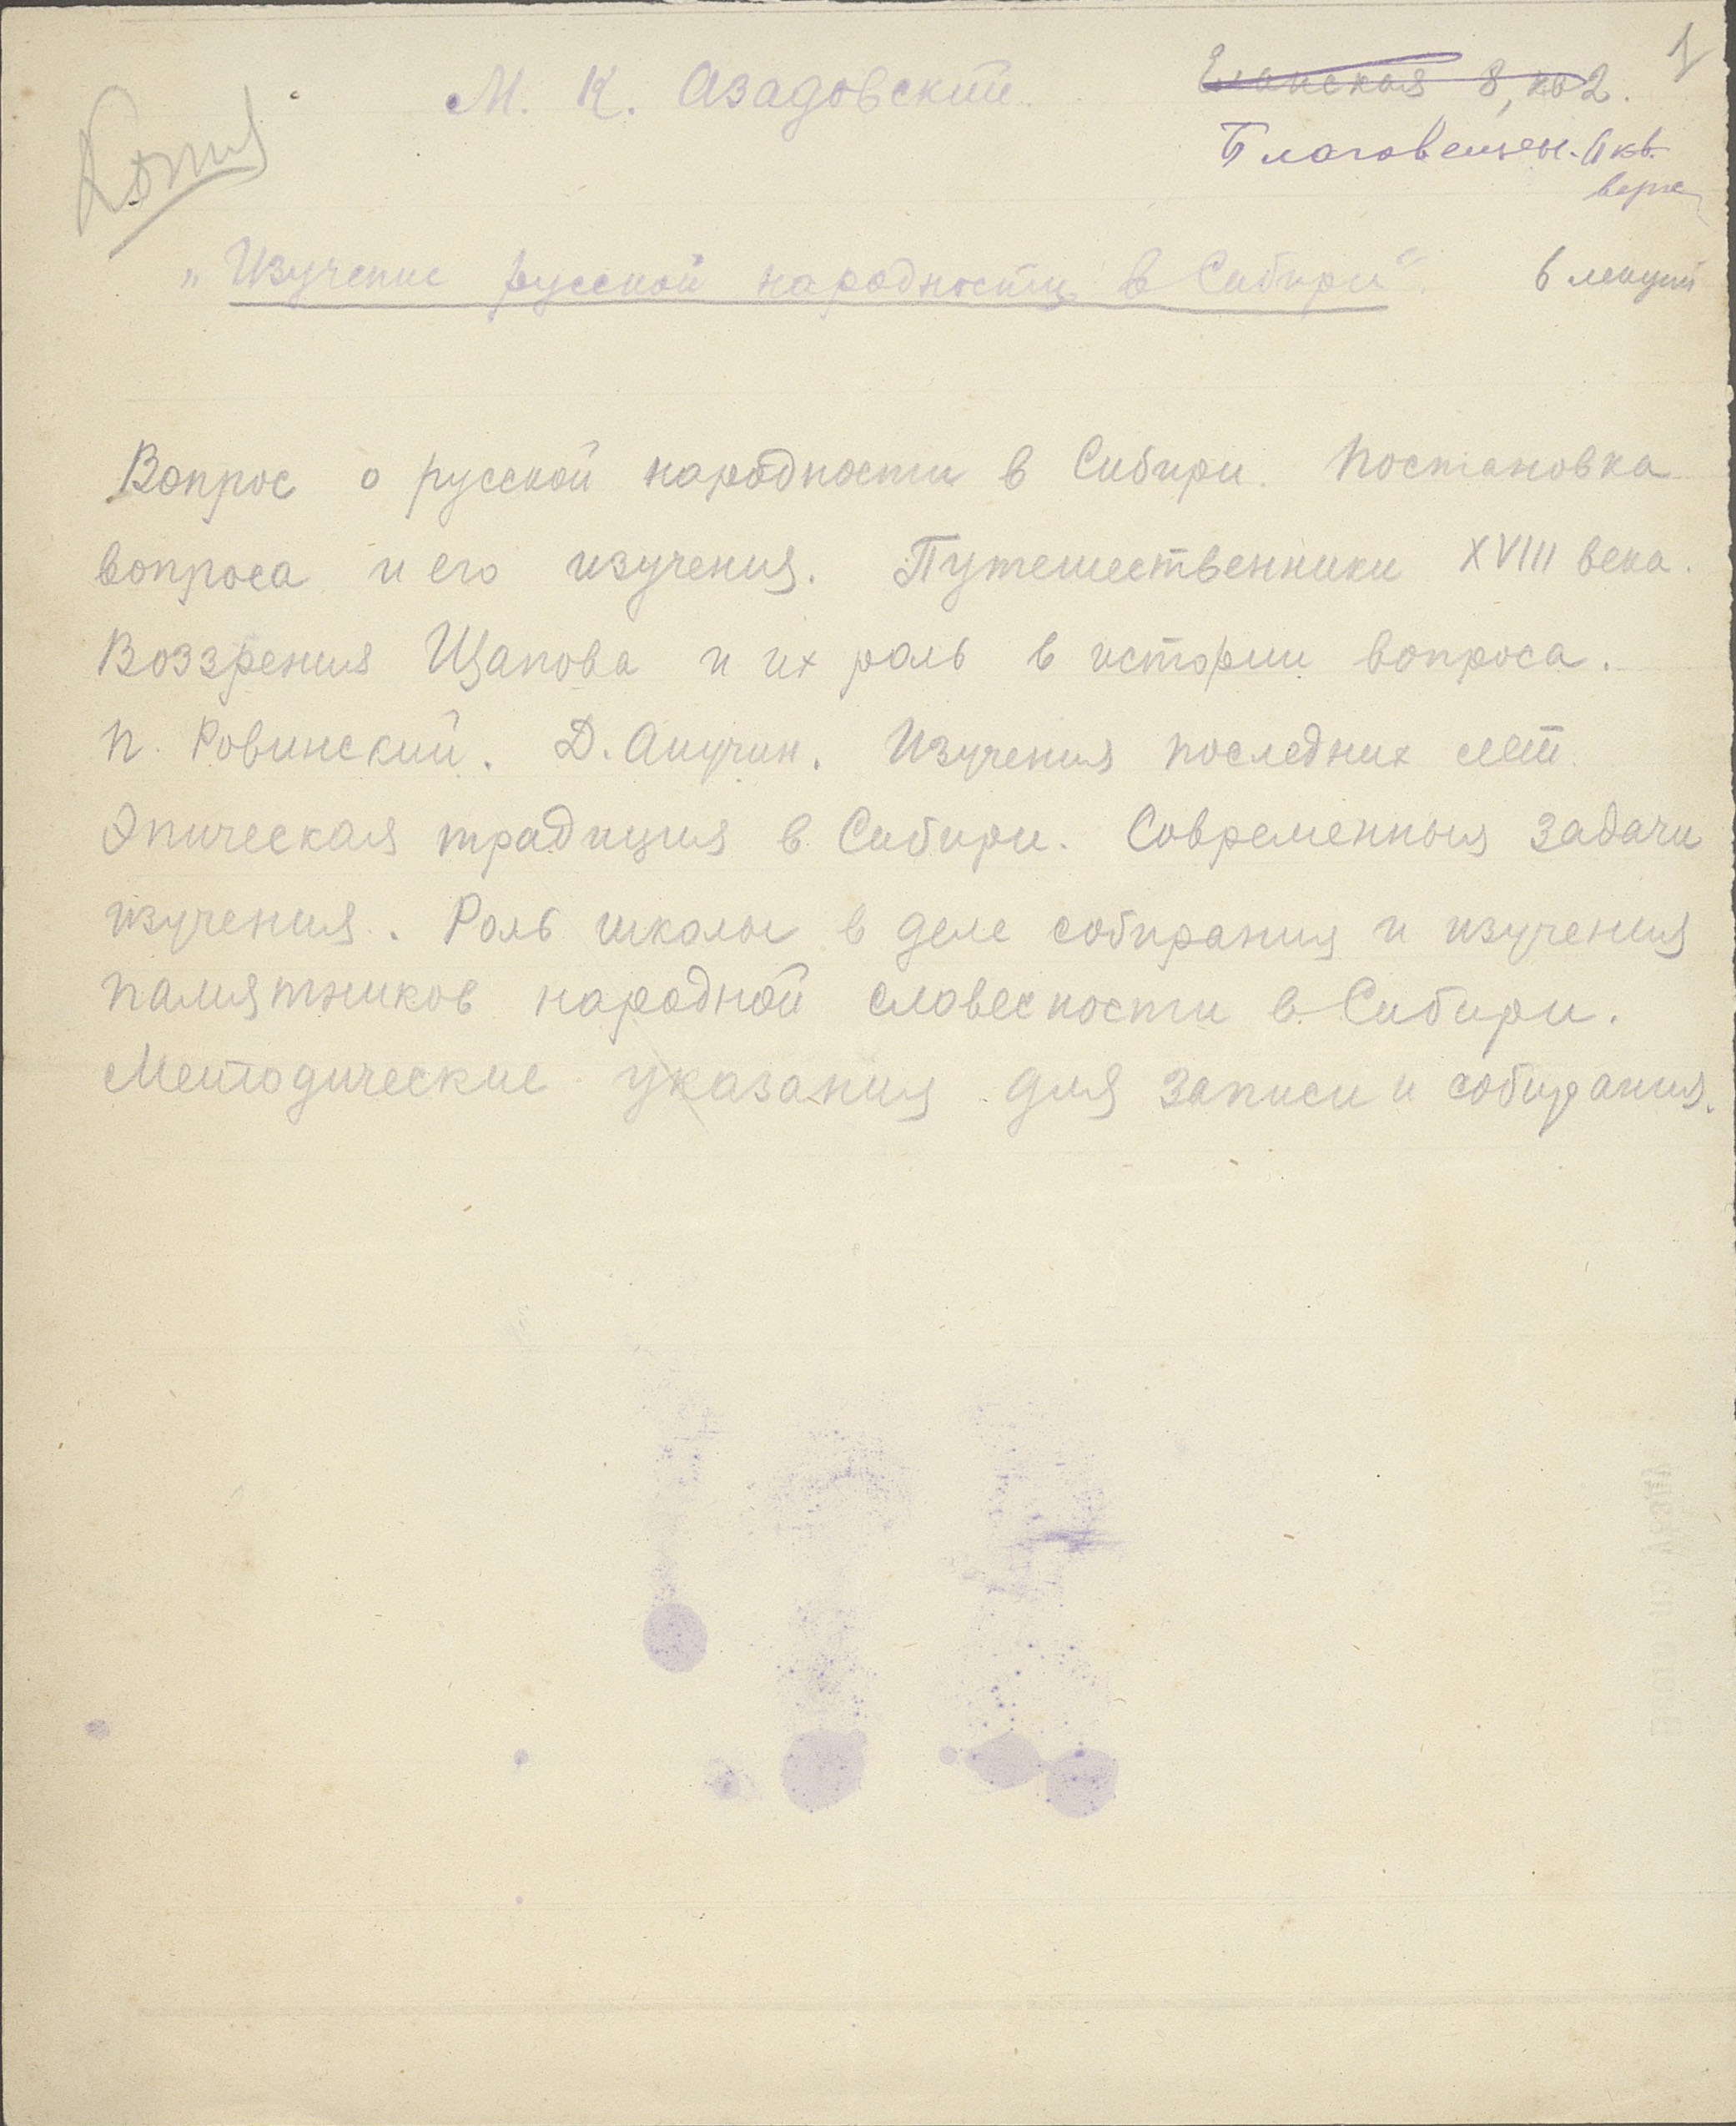 1
Копия
М. К. Азадовский
Еланская 8, кв 2.
Благовещен. 11 кв.
верх
„Изучение русской народности в Сибири“. 6 лекций
Вопрос о русской народности в Сибири. Постановка
вопроса и его изучения. Путешественники XVIII века.
Воззрения Щапова и их роль в истории вопроса.
П. Ровинский. Д. Анучин. Изучения последних лет.
Эпическая традиция в Сибири. Современныя задачи
изучения. Роль школы в деле собирания и изучения
памятников народной словесности в Сибири.
Методические указания для записи и собирания.